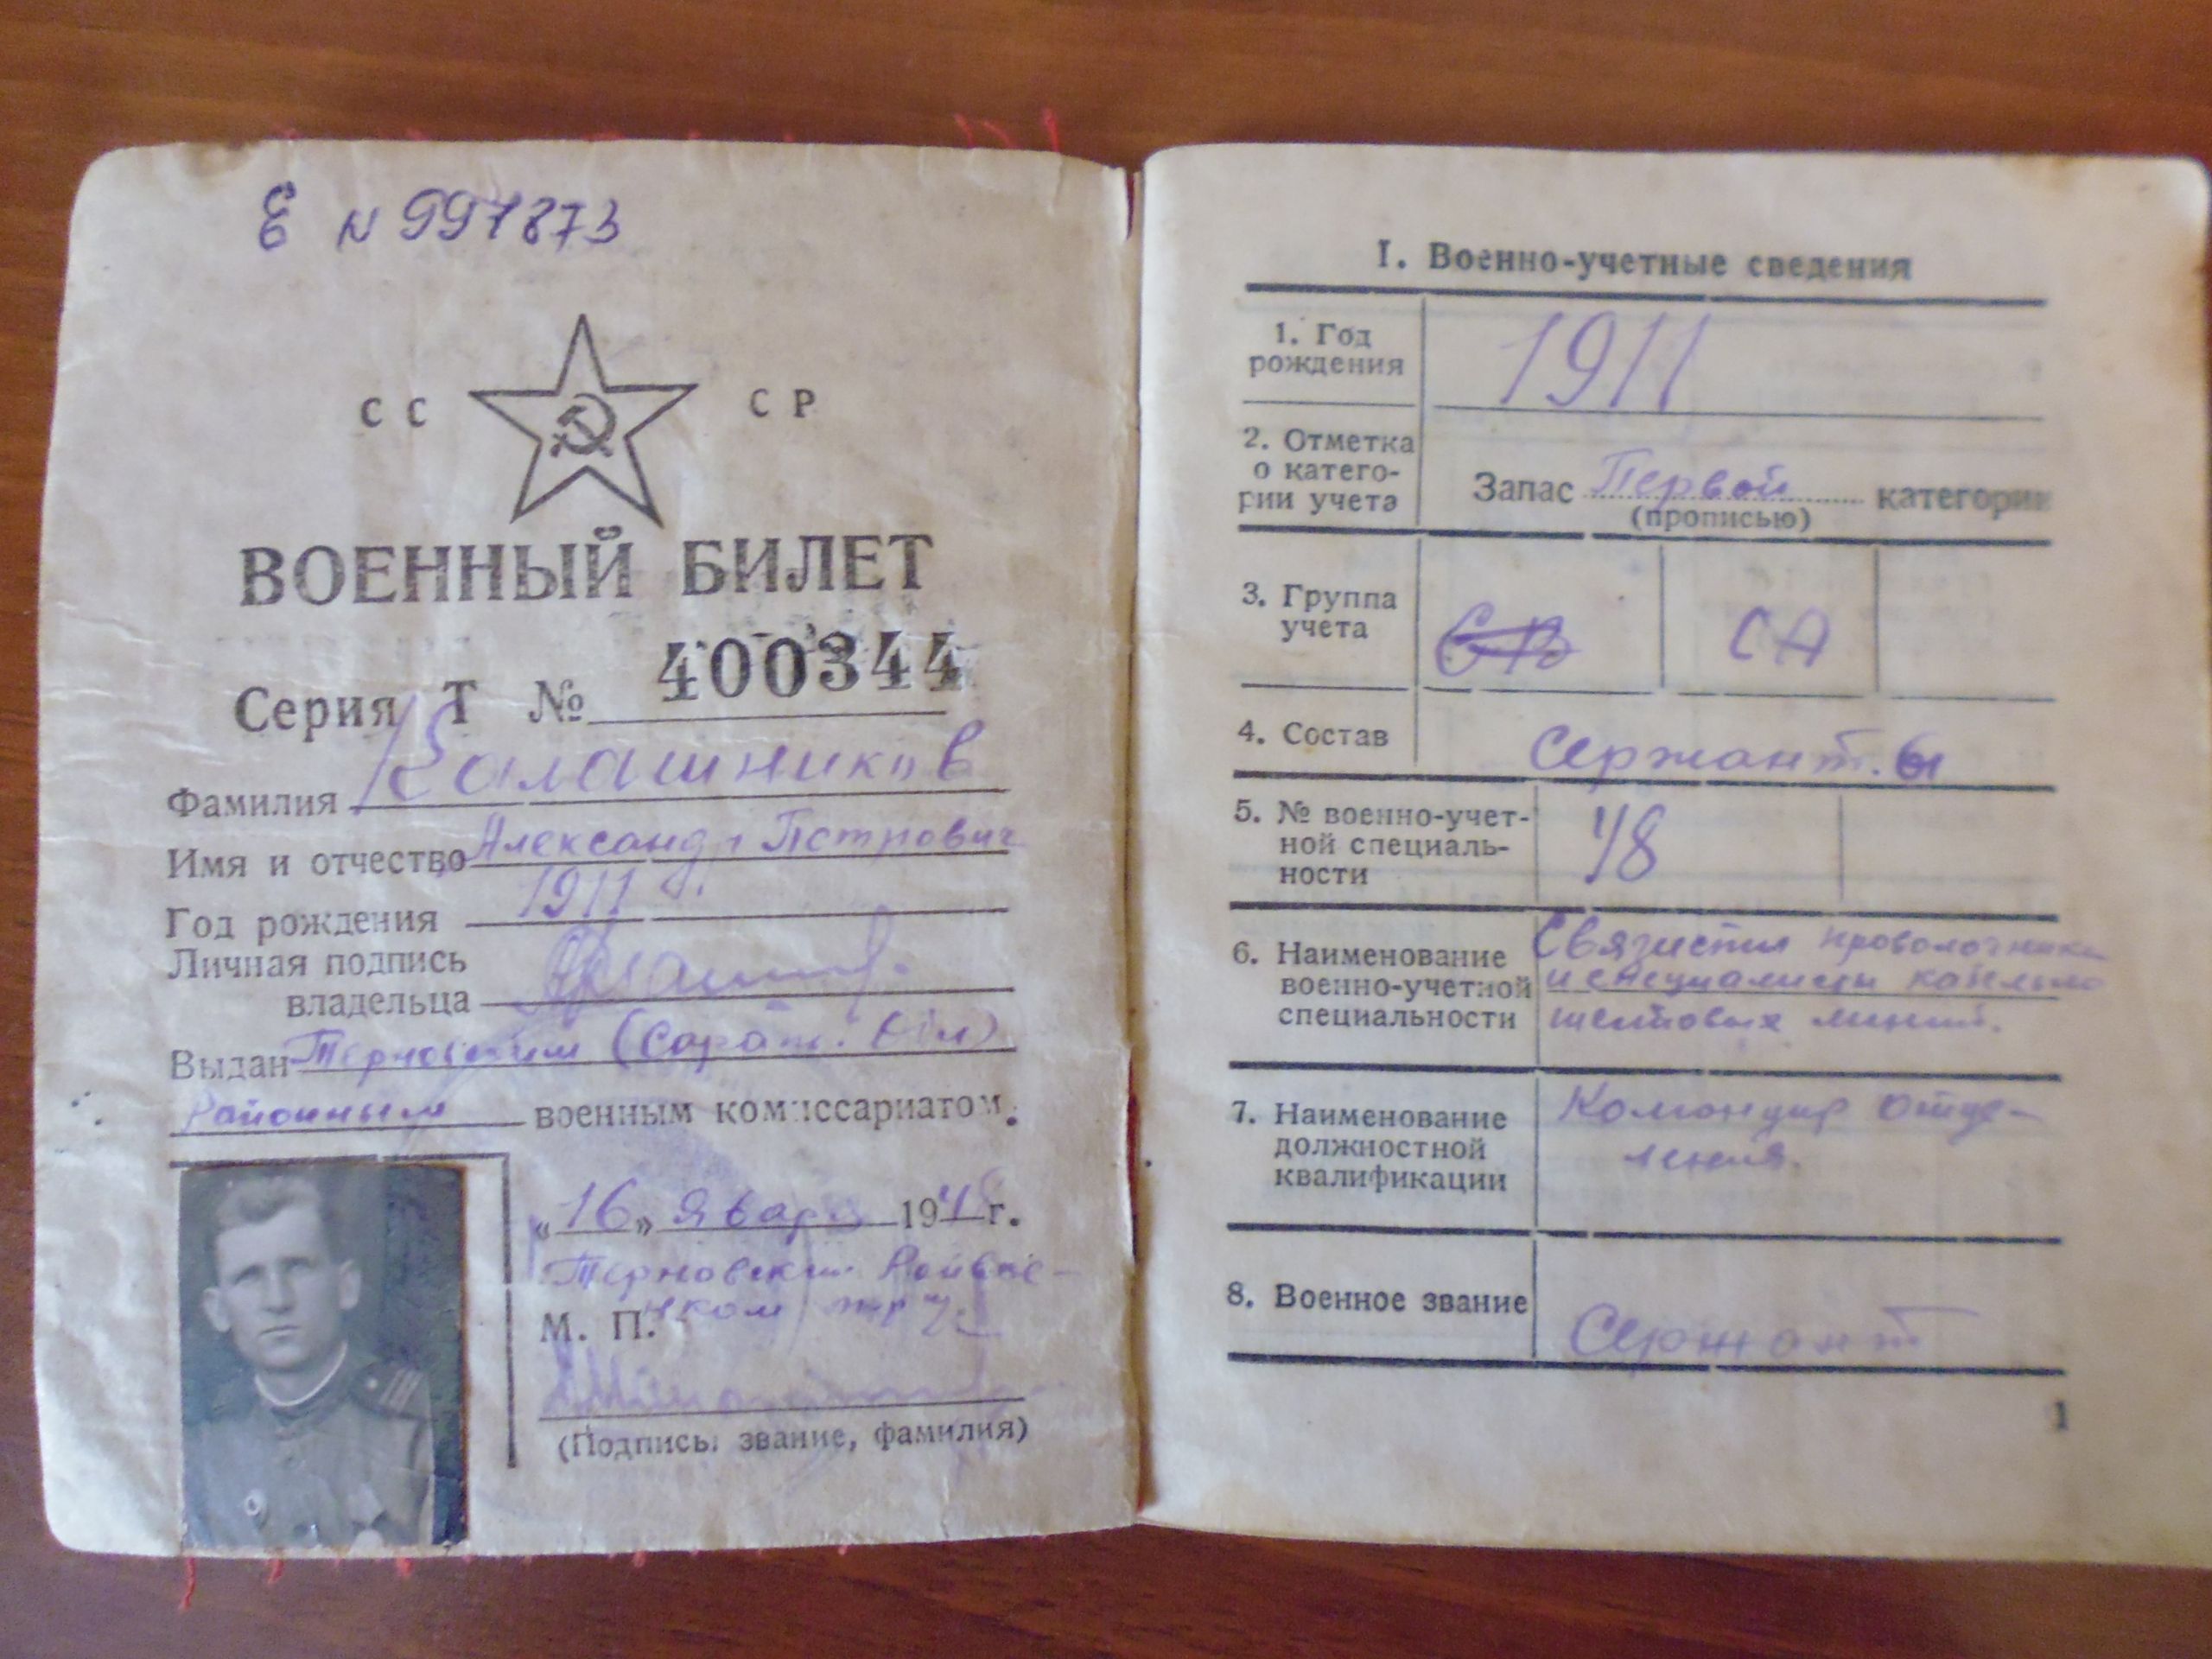 Е N 997873
СС СР
ВОЕННЫЙ БИЛЕТ
Серия Т № 400344
Фамилия Калашников
Имя и отчество Александр Петрович
Год рождения 1911
Личная подпись
владельца
Выдан Терновским (Сарат. Обл)
Районным военным комиссариатом.
«16» января 194 г.
Терновский
М. П.
(Подпись, звание, фамилия)
I. Военно-учетные сведения
1. Год
рождения
1911
2. Отметка
о катего-
рии учета
Запас Первой категории
(прописью)
3. Группа
учета
СВ СА
4. Состав Сержант.ы
5. № военно-учет-
ной специаль-
ности
48
6. Наименование
военно-учетной
специальности
Связисты проволочники
и специалисты кабельно
шестовых линий.
7. Наименование
должностной
квалификации
Командир отде-
ления.
8. Военное звание Сержант
1